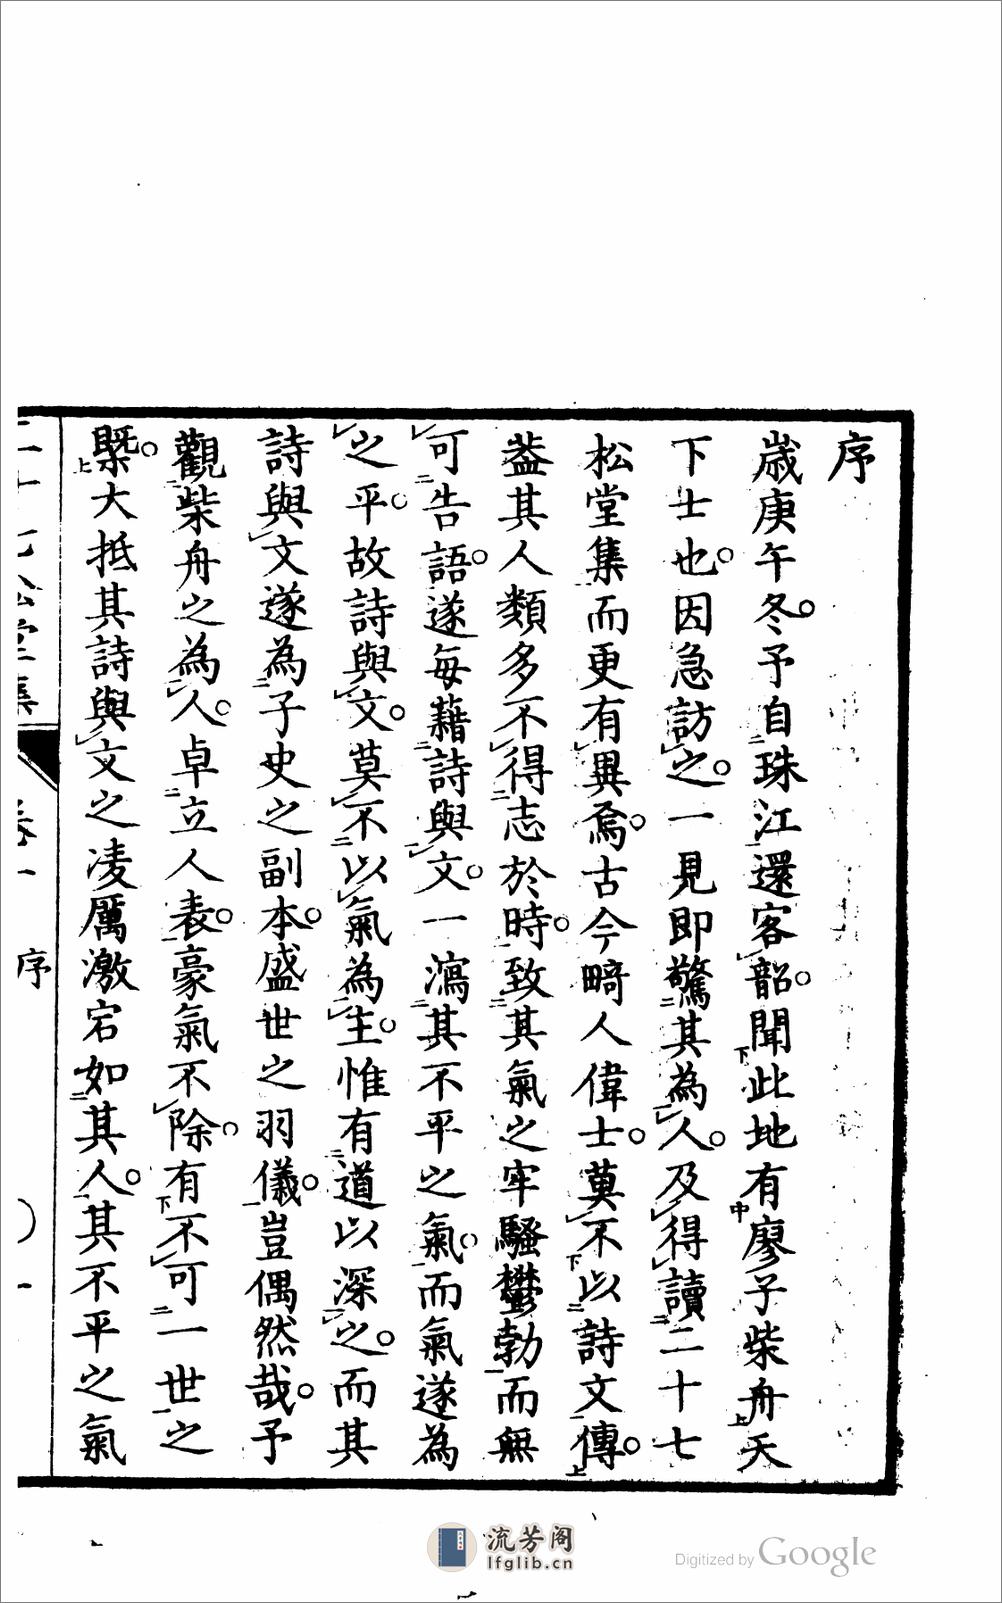 序
歳庚午冬予自珠江還客韶聞此地有廖子柴舟天
下士也因急訪之一見即驚其為人及得讀二十七
松堂集而更有異焉古今畸人偉士莫不以詩文傳
葢其人類多不得志於時致其氣之牢騷鬱勃而無
可告語遂每藉詩與文一瀉其不平之氣而氣遂為
之平故詩與文莫不以氣為主惟有道以深之而其
詩與文遂為子史之副本盛世之羽儀豈偶然哉予
觀柴舟之為人卓立人表豪氣不除有不可一世之
槩大抵其詩與文之凌厲激宕如其人其不平之氣
二十七松堂集 卷一 序 一
流芳阁
lfglib.cn
Digitized by Google